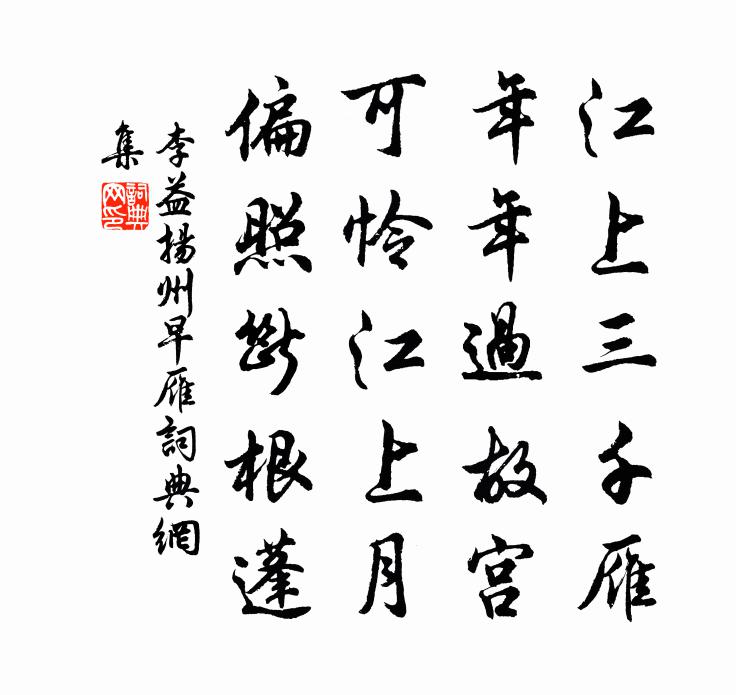 江上三千雁
年年過故宮
可怜江上月
偏照斷根蓬
李益揚州早雁詞典網
集
詞典网印